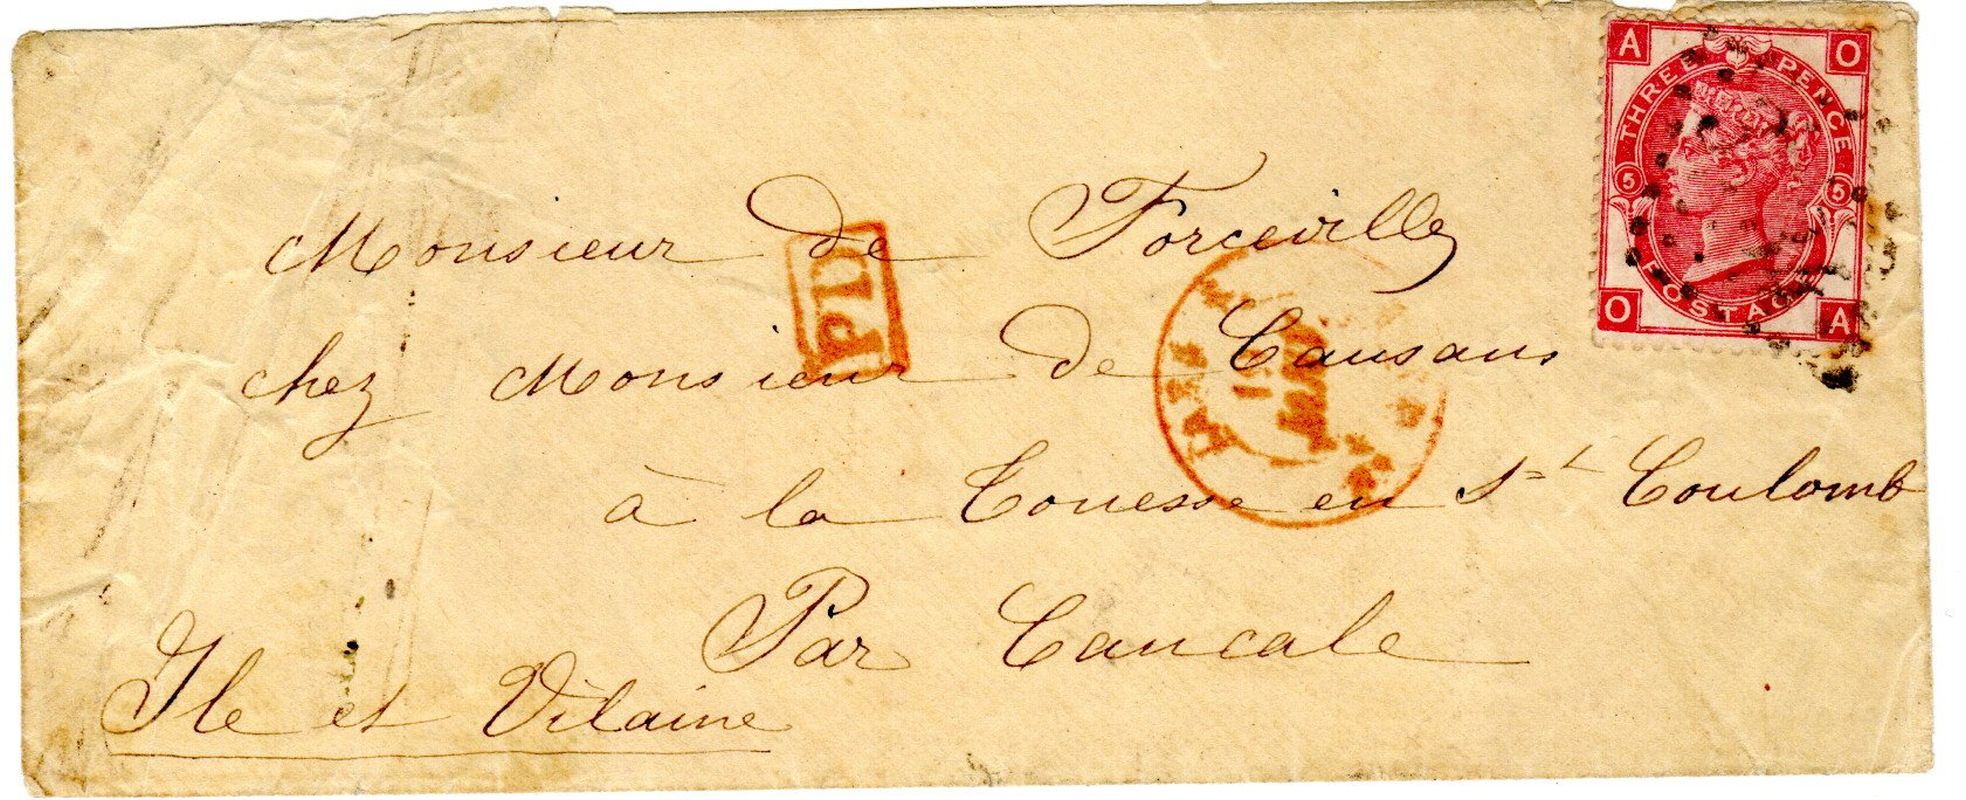 A O
THREE PENCE
5 5
POSTAGE
O A
Monsieur de Forceville
PD
chez Monsieur de Causans
à la Touesse en St Coulomb
Par Cancale
Ile et Vilaine